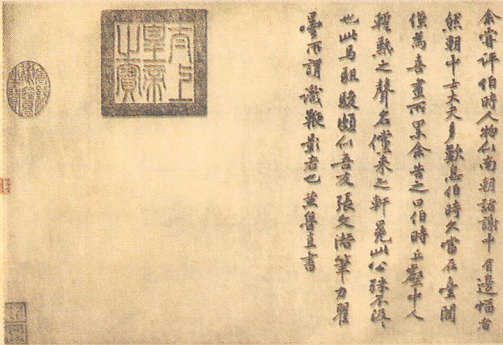 余嘗評伯時人物似南朝諸謝中有邊幅者
然朝中士大夫多歎息伯時久當在臺閣
僅為喜畫所累余告之曰伯時丘壑中人
暫熱之聲名儻來之軒冕此公殊不汲汲
也此馬駔駿頗似吾友張文潛筆力瞿
曇所謂識鞭影者也黃魯直書
太上
皇帝
之寶